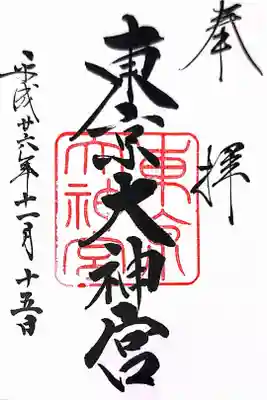 奉拝
東京大神宮
東京大神宮
平成廿六年十一月十五日